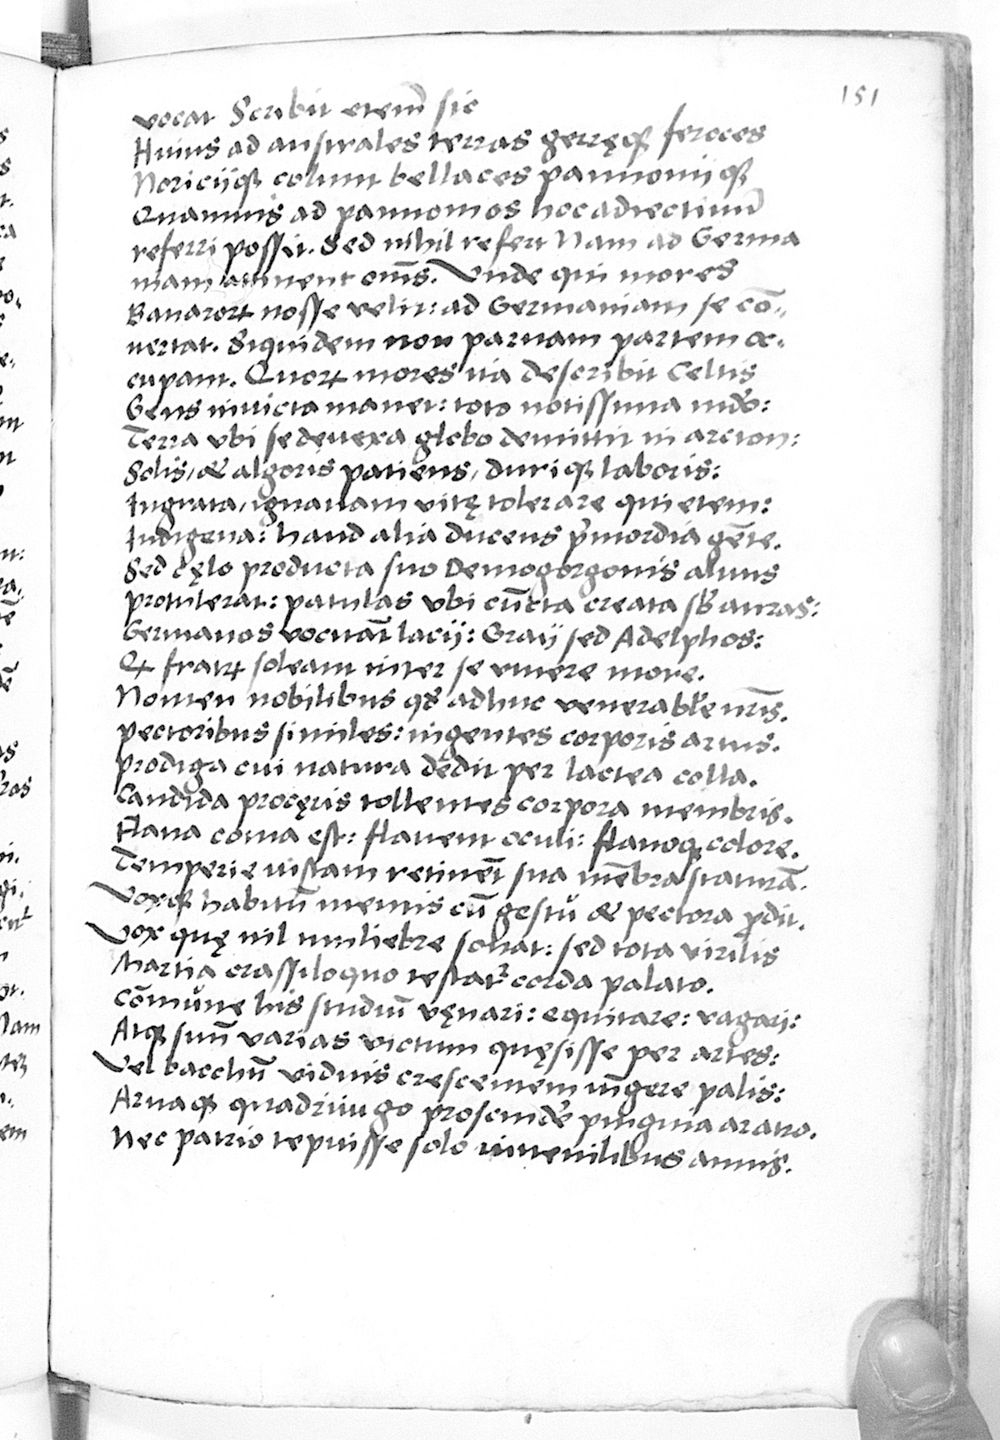 151
vocat Scribit etem̄ sic
Huius ad australes terras gerręqȝ feroces
Noricijqȝ colunt bellaces pannonijqȝ
Quamuis ad pannonios hoc adiectiuū
referri possit. Sed nihil refert Nam ad Germa
niam attinent om̄s. Vnde qui mores
Bauaroꝝ nosse velit: ad Germaniam se cō„
uertat. Siquidem non paruam partem oc„
cupant. Quoꝝ mores ita describit Celtis
Gens inuicta manet: toto notissima mūdo:
Terra vbi se deuexa globo demittit in arcton:
Solis, & algoris patiens, duriqȝ laboris:
Ingrata, ignauam vitę tolerare quietem:
Indigena: haud alia ducens p̄mordia gēte.
Sed cęlo producta suo Demogorgonis aluus
protulerat: patulas vbi cūcta creata sb̄ auras:
Germanos vocitāt lacij: Graij sed Adelphos:
Qꝝ fratꝝ soleant inter se viuere more.
Nomen nobilibus qd̄ adhuc venerabīle nr̄is.
pectoribus similes: ingentes corporis artus.
prodiga cui natura dedit per lactea colla.
Candida procęris tollentes corpora membris.
Flaua coma est: flauent oculi: flauoqȝ colore.
Temperie iustam retinēt sua mēbra staturā.
Voxqȝ habitū mentis cū gestu & pectora ꝓdit.
Vox quę nil muliebre sonat: sed tota virilis
Martia crassiloquo testat᷑ corda palato.
Cōmune his studiū vęnari: equitare: vagari:
Atqȝ suū varias victum quęsisse per artes:
Vel bacchū viduis crescentem iūgere palis:
Aruaqȝ quadriiugo proscindē pinguia aratro.
Nec patrio tepuisse solo iuuenilibus annis.